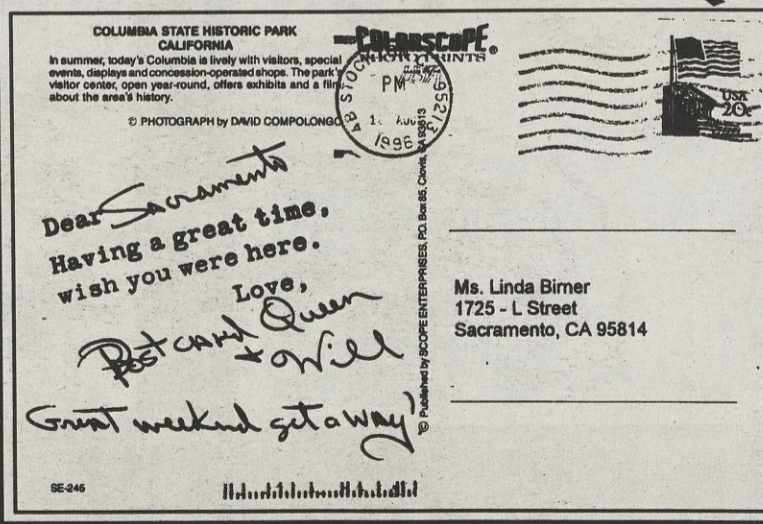 COLUMBIA STATE HISTORIC PARK
CALIFORNIA
In summer, today's Columbia is lively with visitors, special
events, displays and concession-operated shops. The park's
visitor center, open year-round, offers exhibits and a film
about the area's history.
© PHOTOGRAPH by DAVID COMPOLONGO
COLORSCOPE®
PRINTS
STOCK
PM
95213
AUG
1996
USA
20c
Dear Sacramento
Having a great time,
wish you were here.
Love,
Postcard Queen
+ Will
Great weekend getaway!
© Published by SCOPE ENTERPRISES, P.O. Box 85, Clovis, CA 93613
Ms. Linda Birner
1725 - L Street
Sacramento, CA 95814
SE-245